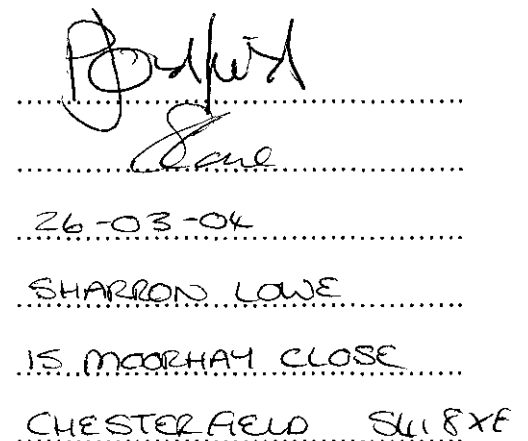 26-03-04
SHARRON LOWE
15 MOORHAY CLOSE
CHESTERFIELD S41 8XE